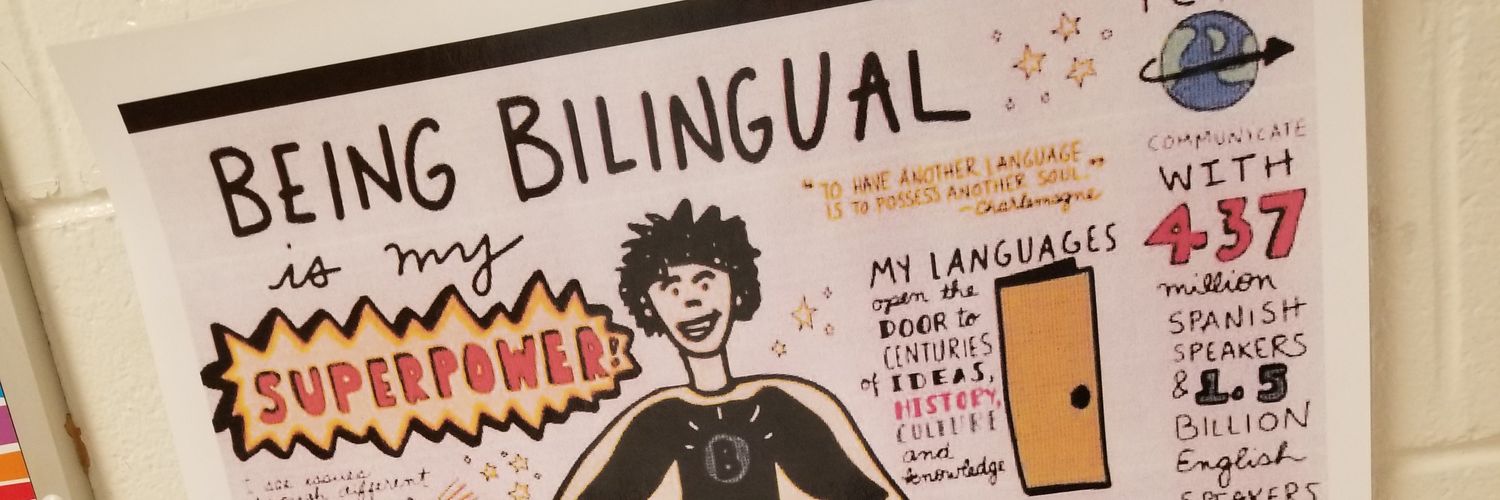 BEING BILINGUAL
is my
SUPERPOWER!
I see issues
different
B
"TO HAVE ANOTHER LANGUAGE
IS TO POSSESS ANOTHER SOUL."
-Charlemagne
MY LANGUAGES
open the
DOOR to
CENTURIES
of IDEAS,
HISTORY,
CULTURE
and
knowledge
COMMUNICATE
WITH
437
million
SPANISH
SPEAKERS
& 1.5
BILLION
English
SPEAKERS